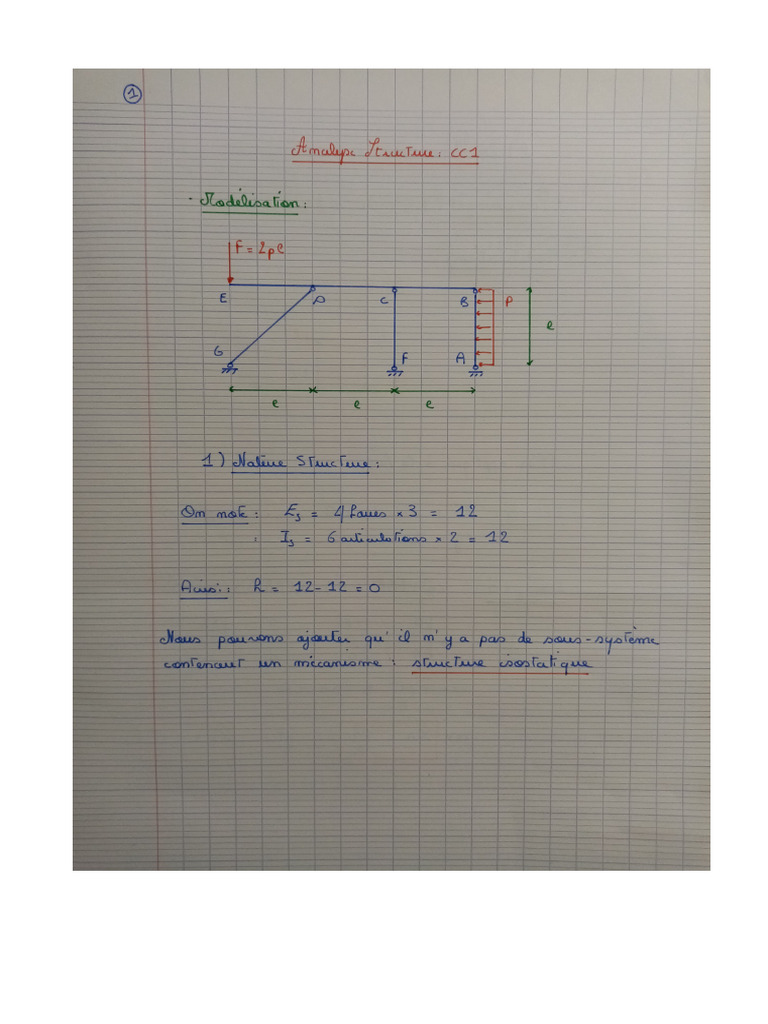 1
Analyse Structure : CC1
- Modélisation :
F = 2pl
E D C B P
l
G F A
l l l
1) Nature Structure :
On note : Es = 4 barres × 3 = 12
: Is = 6 articulations × 2 = 12
Ainsi : h = 12 - 12 = 0
Nous pouvons ajouter qu'il n'y a pas de sous-système
contenant un mécanisme : structure isostatique